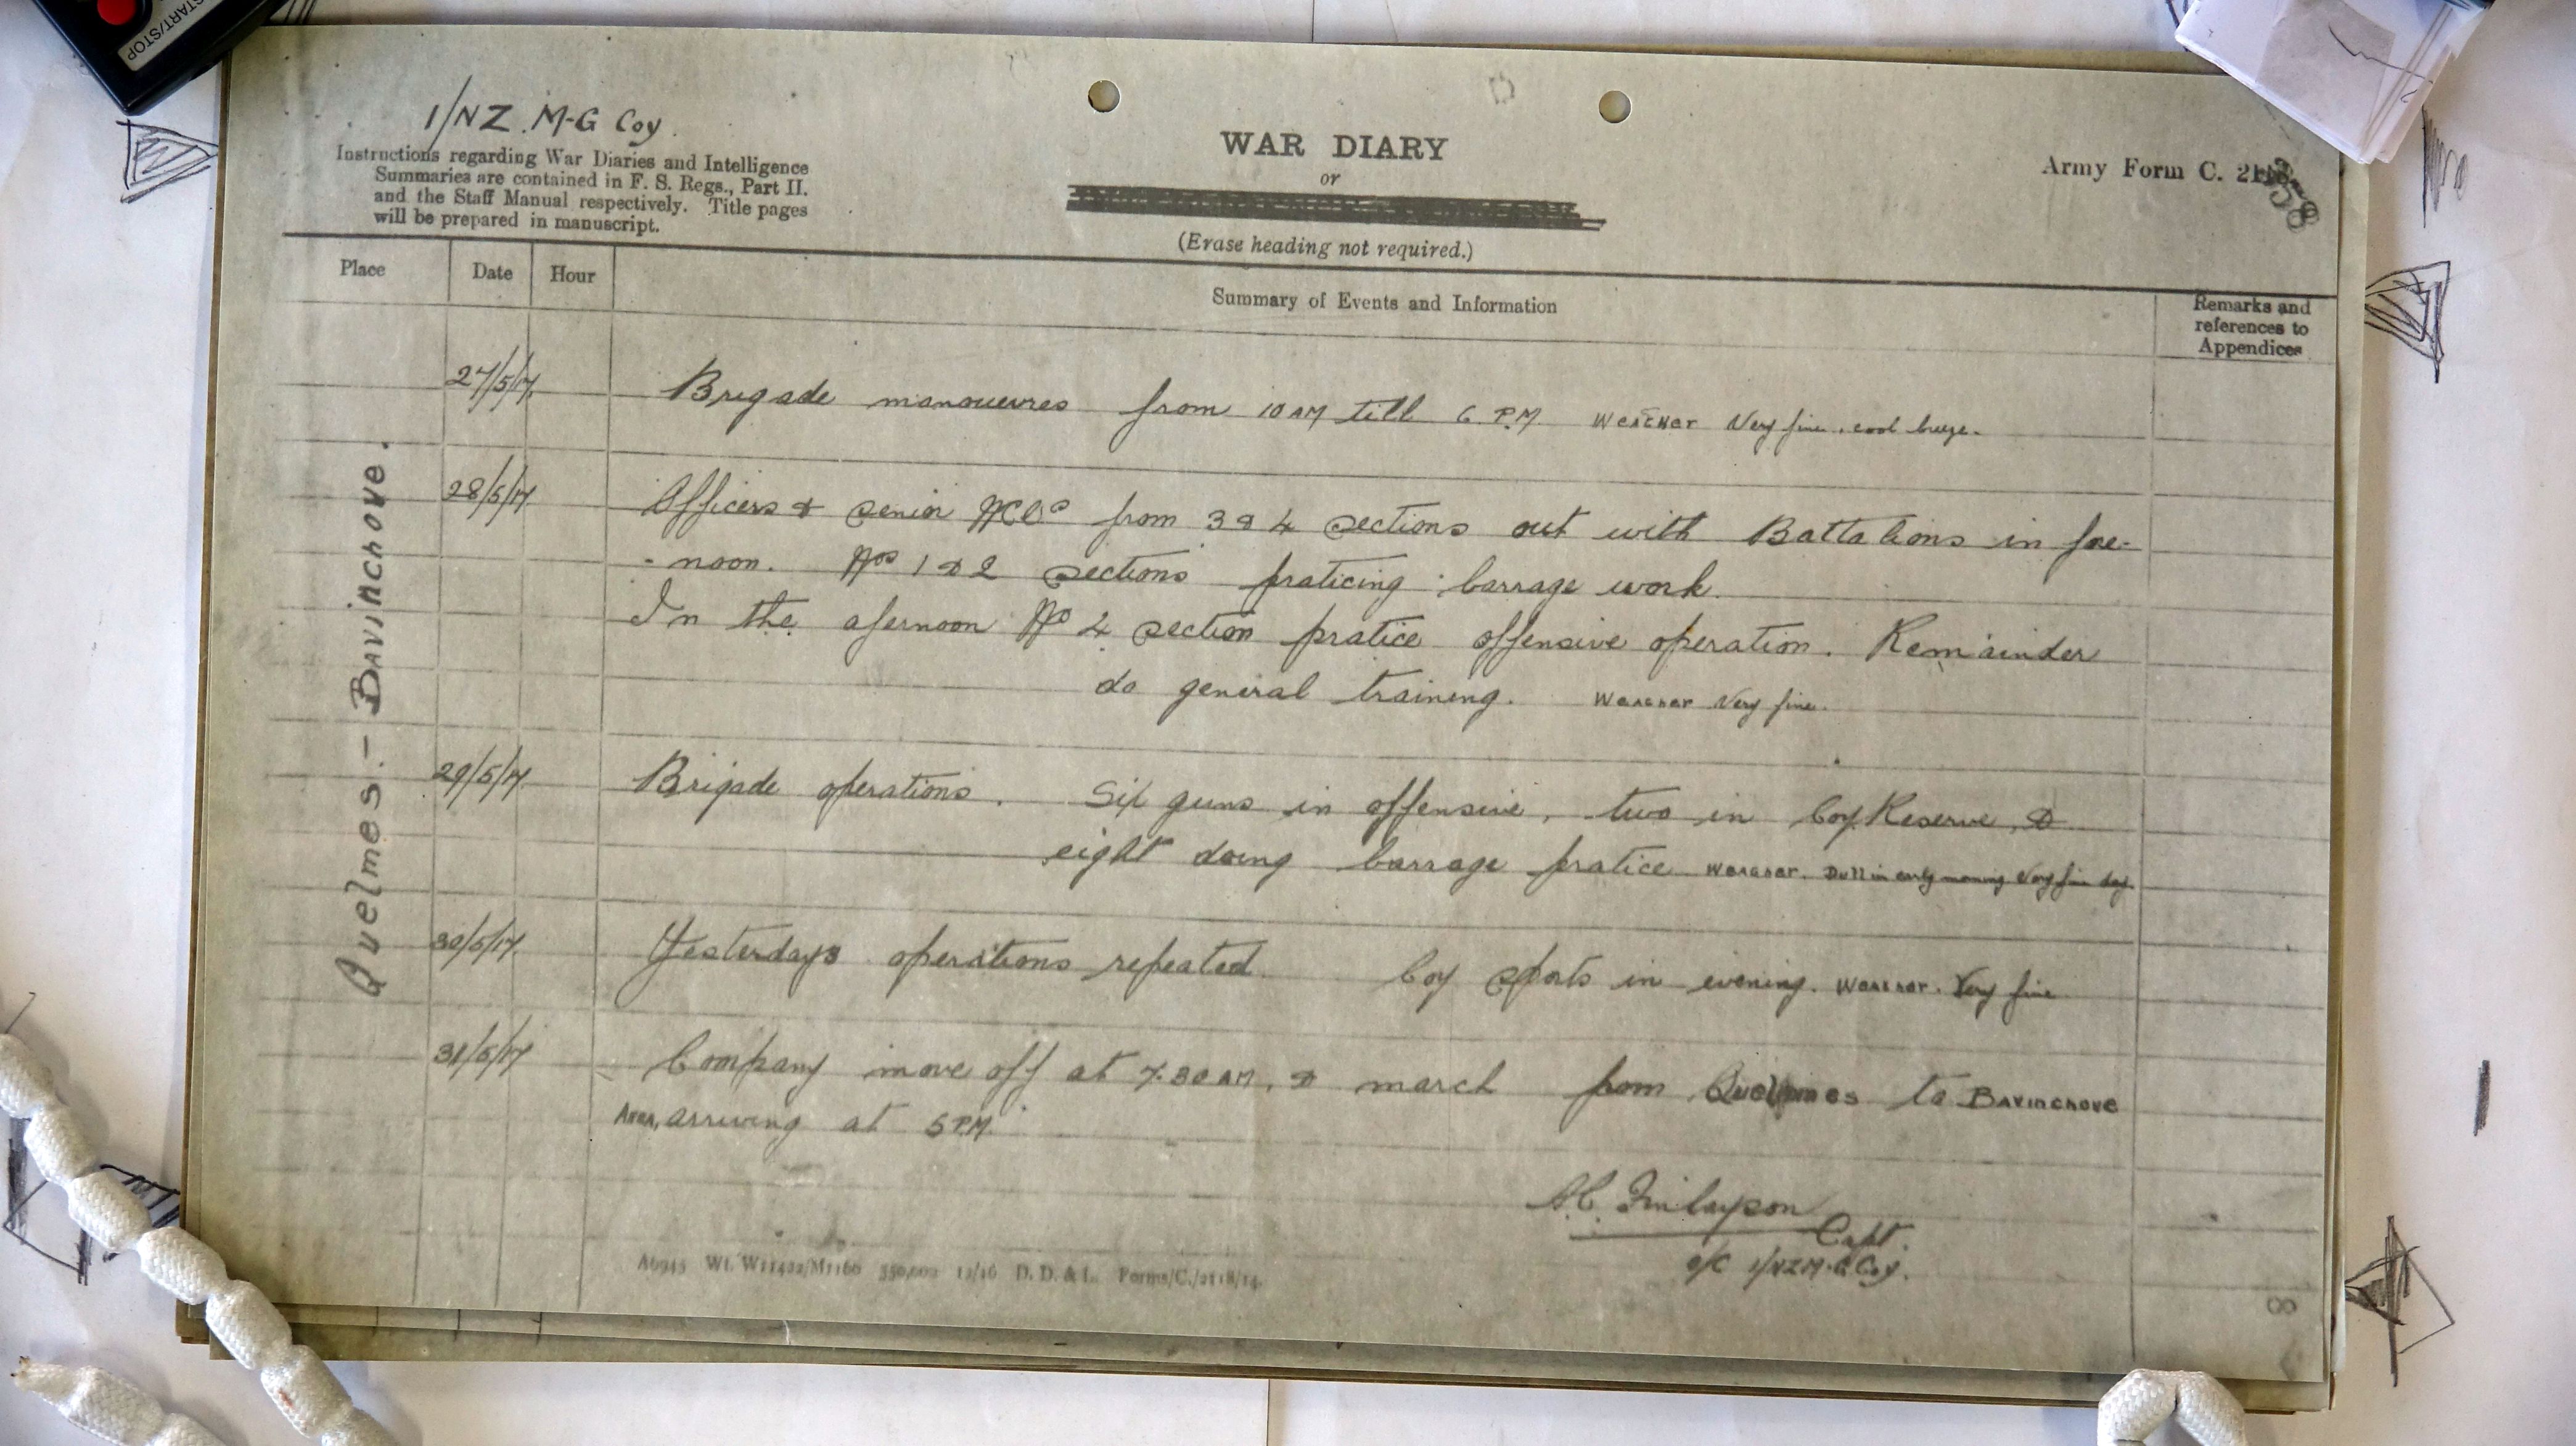 START/STOP
1/NZ. M-G Coy.
Instructions regarding War Diaries and Intelligence
Summaries are contained in F. S. Regs., Part II.
and the Staff Manual respectively. Title pages
will be prepared in manuscript.
WAR DIARY
or
(Erase heading not required.)
Army Form C.
Place
Date
Hour
Summary of Events and Information
Remarks and
references to
Appendices
Quelmes.- Bavinchove.
27/5/17. Brigade manouevres from 10 AM till 6 P.M. Weather Very fine, cool breeze.
28/5/17. Officers & senior NCOs from 3 & 4 sections out with Battalions in fore-
-noon. Nos 1 & 2 sections praticing barrage work.
In the afernoon No 4 section pratice offensive operation. Remainder
do general training. Weather Very fine.
29/5/17. Brigade operations. Six guns in offensive, two in Coy Reserve, &
eight doing barrage pratice Weather. Dull in early morning Very fine day.
30/5/17. Yesterdays operations repeated. Coy sports in evening. Weather. Very fine
31/5/17 Company move off at 7.30 AM, & march from Quelmes to Bavinchove
Area, arriving at 5 PM.
A.C. Finlayson
Capt.
O/C 1/NZ M-G Coy.
A6945 Wt. W11422/M1160 350,000 12/16 D. D. & L. Forms/C./2118/14.
8